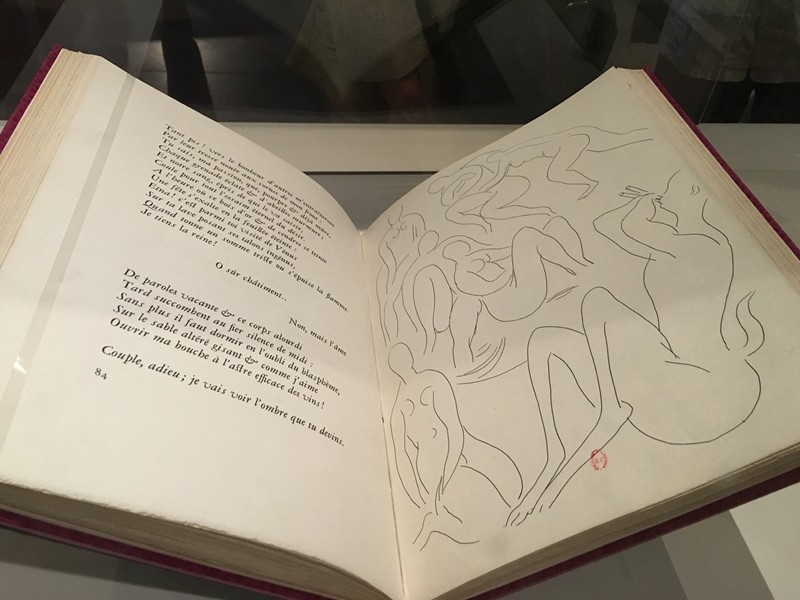 Tant pis ! vers le bonheur d'autres m'entraîneront
Par leur tresse nouée aux cornes de mon front :
Tu sais, ma passion, que, pourpre & déjà mûre,
Chaque grenade éclate & d'abeilles murmure ;
Et notre sang, épris de qui le va saisir,
Coule pour tout l'essaim éternel du désir.
A l'heure où ce bois d'or & de cendres se teinte
Une fête s'exalte en la feuillée éteinte :
Etna ! c'est parmi toi visité de Vénus
Sur ta lave posant ses talons ingénus,
Quand tonne un somme triste ou s'épuise la flamme.
Je tiens la reine !
O sûr châtiment..
Non, mais l'âme
De paroles vacante & ce corps alourdi
Tard succombent au fier silence de midi :
Sans plus il faut dormir en l'oubli du blasphème,
Sur le sable altéré gisant & comme j'aime
Ouvrir ma bouche à l'astre efficace des vins !
Couple, adieu ; je vais voir l'ombre que tu devins.
84